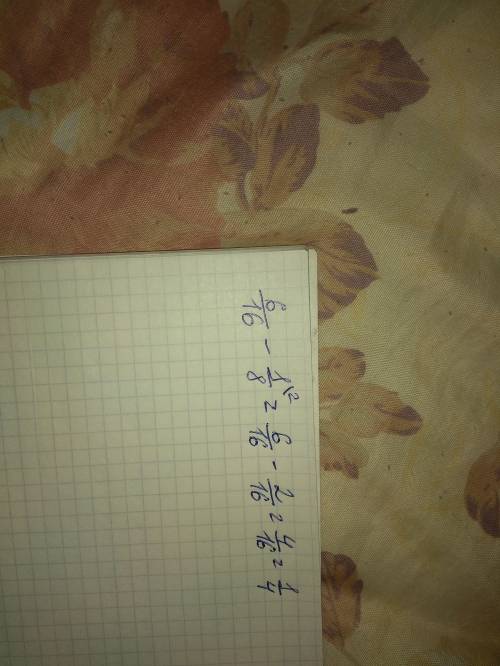 6/16 - 1\2/8 = 6/16 - 2/16 = 4/16 = 1/4